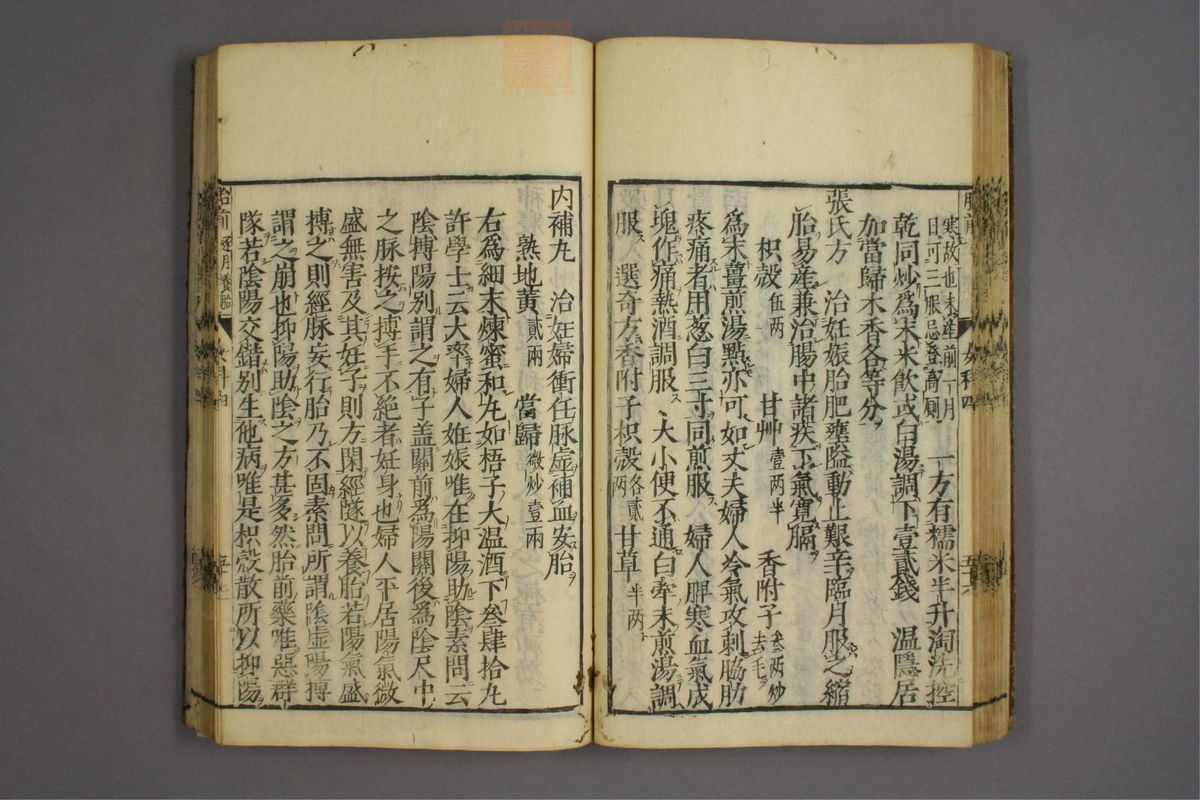 胎前
女科四
寒故也未產前一月
日可三服忌登高厠
一方有糯米半升淘洗控
乾同炒爲末米飮或白湯調下壹貳錢 温隱居
加當歸木香各等分
張氏方 治妊娠胎肥壅隘動止艱辛臨月服之縮
胎易産兼治腸中諸疾下氣寬膈
枳殼 伍两 甘艸 壹两半 香附子 叁两炒去毛
爲末薑煎湯點亦可如丈夫婦人冷氣攻刺脇肋
疼痛者用葱白三寸同煎服 婦人脾寒血氣成
塊作痛熱酒調服 大小便不通白牽末煎湯調
服 選奇方香附子枳殼 各貳两 甘草 半两
内補丸 治妊婦衝任脉虛補血安胎
熟地黄 貳兩 當歸 微炒壹兩
右爲細末煉蜜和丸如梧子大温酒下叁肆拾丸
許學士云大率婦人妊娠唯在抑陽助陰素問云
陰搏陽别謂之有子盖關前爲陽關後爲陰尺中
之脉按之搏手不絶者妊身也婦人平居陽氣微
盛無害及其妊子則方閉經隧以養胎若陽氣盛
搏之則經脉妄行胎乃不固素問所謂陰虛陽搏
謂之崩也抑陽助陰之方甚多然胎前藥唯惡群
隊若陰陽交錯别生他病唯是枳殼散所以抑陽
胎前 逐月養胎
女科四